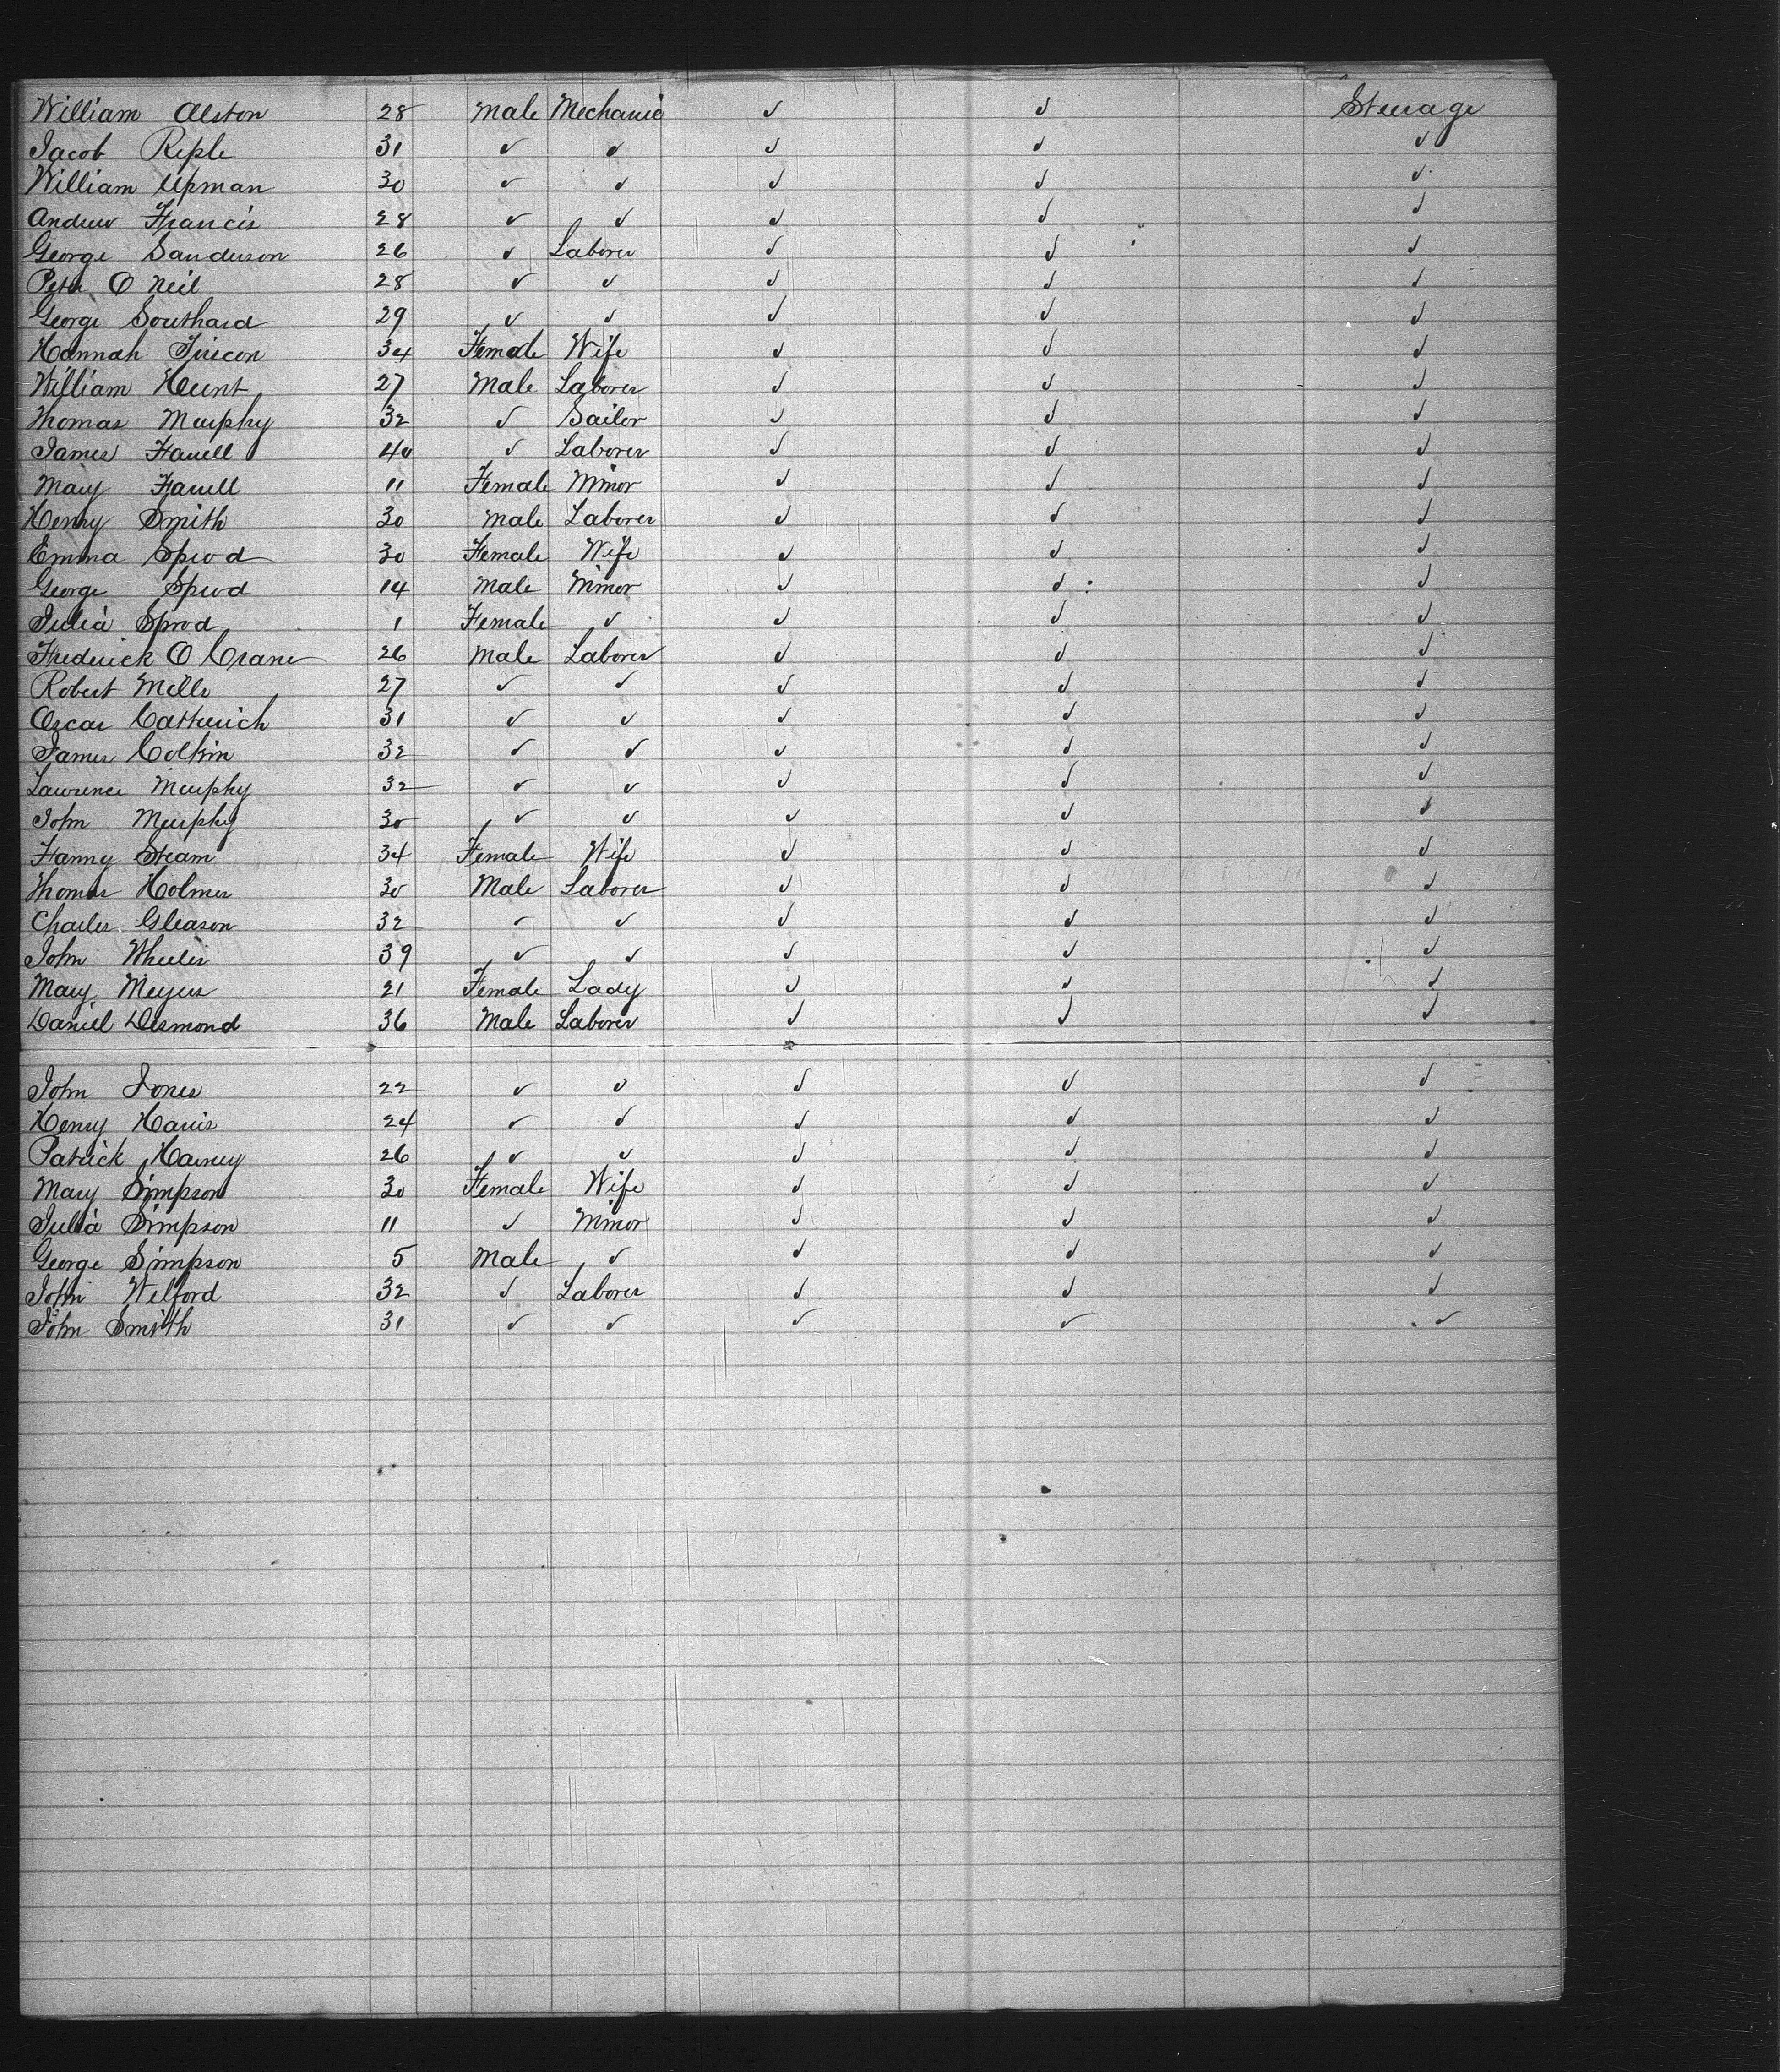 William Alston 28 Male Mechanic ✓ ✓ Steerage
Jacob Reple 31 ✓ ✓ ✓ ✓ ✓
William Upman 30 ✓ ✓ ✓ ✓ ✓
Andrew Francis 28 ✓ ✓ ✓ ✓ ✓
George Sanderson 26 ✓ Laborer ✓ ✓ ✓
Peter O Neil 28 ✓ ✓ ✓ ✓ ✓
George Southard 29 ✓ ✓ ✓ ✓ ✓
Hannah 34 Female Wife ✓ ✓ ✓
William Hunt 27 Male Laborer ✓ ✓ ✓
Thomas Murphy 32 ✓ Sailor ✓ ✓ ✓
James Farrell 40 ✓ Laborer ✓ ✓ ✓
Mary Farrell 11 Female Minor ✓ ✓ ✓
Henry Smith 30 Male Laborer ✓ ✓ ✓
Emma Sprod 30 Female Wife ✓ ✓ ✓
George Sprod 14 Male Minor ✓ ✓ ✓
Julia Sprod 1 Female ✓ ✓ ✓ ✓
Frederick O Crane 26 Male Laborer ✓ ✓ ✓
Robert Mills 27 ✓ ✓ ✓ ✓ ✓
Oscar Catterich 31 ✓ ✓ ✓ ✓ ✓
James Colkin 32 ✓ ✓ ✓ ✓ ✓
Lawrence Murphy 32 ✓ ✓ ✓ ✓ ✓
John Murphy 30 ✓ ✓ ✓ ✓ ✓
Fanny Steam 34 Female Wife ✓ ✓ ✓
Thomas Holmes 30 Male Laborer ✓ ✓ ✓
Charles Gleason 32 ✓ ✓ ✓ ✓ ✓
John Wheeler 39 ✓ ✓ ✓ ✓ ✓
Mary Meyers 21 Female Lady ✓ ✓ ✓
Daniel Desmond 36 Male Laborer ✓ ✓ ✓
John Jones 22 ✓ ✓ ✓ ✓ ✓
Henry Harris 24 ✓ ✓ ✓ ✓ ✓
Patrick Harney 26 ✓ ✓ ✓ ✓ ✓
Mary Simpson 30 Female Wife ✓ ✓ ✓
Julia Simpson 11 ✓ Minor ✓ ✓ ✓
George Simpson 5 Male ✓ ✓ ✓ ✓
John Welford 32 ✓ Laborer ✓ ✓ ✓
John Smith 31 ✓ ✓ ✓ ✓ ✓